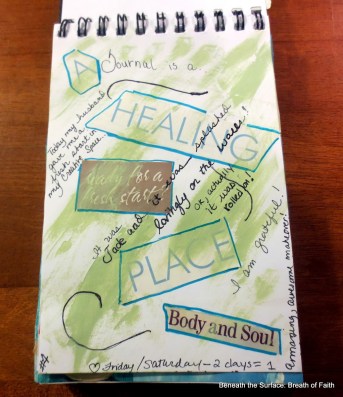 A
Journal is a...
HEALING
PLACE
Today my husband
gave me a
fresh start in
my creative space...
ready for a
fresh start
It was
Jade and it was splashed
lovingly on the walls!
Or, actually
it was
rolled on!
I am grateful!
Amazing, awesome makeover!
Body and Soul
#4
♡ Friday/Saturday - 2 days = 1
Beneath the Surface: Breath of Faith